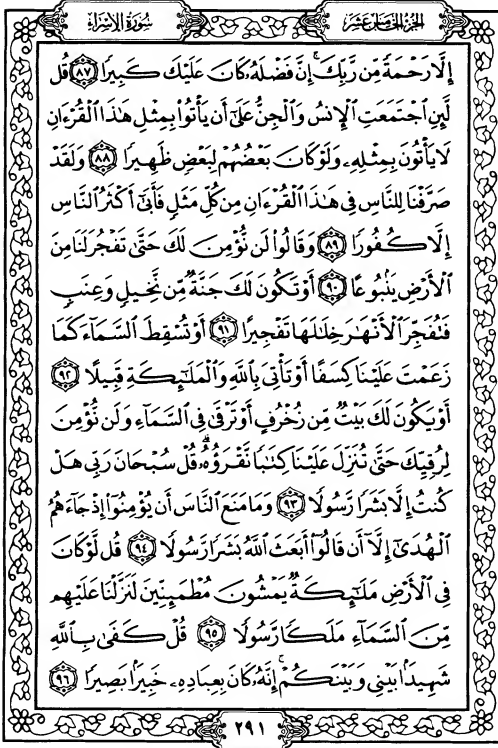 الجزء الخامس عشر
سورة الإسراء
إِلَّا رَحْمَةً مِّن رَّبِّكَ ۚ إِنَّ فَضْلَهُۥ كَانَ عَلَيْكَ كَبِيرًا ﴿٨٧﴾ قُل
لَّئِنِ ٱجْتَمَعَتِ ٱلْإِنسُ وَٱلْجِنُّ عَلَىٰٓ أَن يَأْتُوا۟ بِمِثْلِ هَٰذَا ٱلْقُرْءَانِ
لَا يَأْتُونَ بِمِثْلِهِۦ وَلَوْ كَانَ بَعْضُهُمْ لِبَعْضٍ ظَهِيرًا ﴿٨٨﴾ وَلَقَدْ
صَرَّفْنَا لِلنَّاسِ فِى هَٰذَا ٱلْقُرْءَانِ مِن كُلِّ مَثَلٍ فَأَبَىٰٓ أَكْثَرُ ٱلنَّاسِ
إِلَّا كُفُورًا ﴿٨٩﴾ وَقَالُوا۟ لَن نُّؤْمِنَ لَكَ حَتَّىٰ تَفْجُرَ لَنَا مِنَ
ٱلْأَرْضِ يَنۢبُوعًا ﴿٩٠﴾ أَوْ تَكُونَ لَكَ جَنَّةٌ مِّن نَّخِيلٍ وَعِنَبٍ
فَتُفَجِّرَ ٱلْأَنْهَٰرَ خِلَٰلَهَا تَفْجِيرًا ﴿٩١﴾ أَوْ تُسْقِطَ ٱلسَّمَآءَ كَمَا
زَعَمْتَ عَلَيْنَا كِسَفًا أَوْ تَأْتِىَ بِٱللَّهِ وَٱلْمَلَٰٓئِكَةِ قَبِيلًا ﴿٩٢﴾
أَوْ يَكُونَ لَكَ بَيْتٌ مِّن زُخْرُفٍ أَوْ تَرْقَىٰ فِى ٱلسَّمَآءِ وَلَن نُّؤْمِنَ
لِرُقِيِّكَ حَتَّىٰ تُنَزِّلَ عَلَيْنَا كِتَٰبًا نَّقْرَؤُهُۥ ۗ قُلْ سُبْحَانَ رَبِّى هَلْ
كُنتُ إِلَّا بَشَرًا رَّسُولًا ﴿٩٣﴾ وَمَا مَنَعَ ٱلنَّاسَ أَن يُؤْمِنُوٓا۟ إِذْ جَآءَهُمُ
ٱلْهُدَىٰٓ إِلَّآ أَن قَالُوٓا۟ أَبَعَثَ ٱللَّهُ بَشَرًا رَّسُولًا ﴿٩٤﴾ قُل لَّوْ كَانَ
فِى ٱلْأَرْضِ مَلَٰٓئِكَةٌ يَمْشُونَ مُطْمَئِنِّينَ لَنَزَّلْنَا عَلَيْهِم
مِّنَ ٱلسَّمَآءِ مَلَكًا رَّسُولًا ﴿٩٥﴾ قُلْ كَفَىٰ بِٱللَّهِ
شَهِيدًۢا بَيْنِى وَبَيْنَكُمْ ۚ إِنَّهُۥ كَانَ بِعِبَادِهِۦ خَبِيرًۢا بَصِيرًا ﴿٩٦﴾
٢٩١